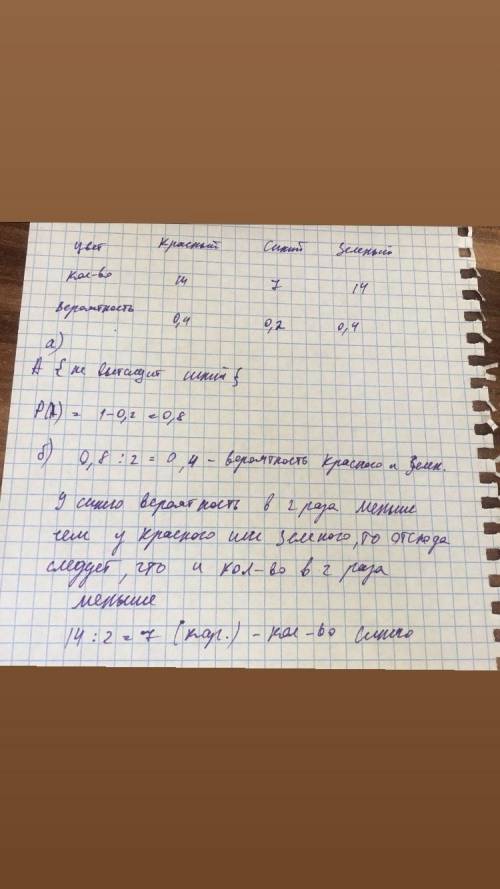 Цвет Красный Синий Зеленый
Кол-во 14 7 14
Вероятность 0,4 0,2 0,4
а)
А { не вытащит синий }
P(A) = 1-0,2 = 0,8
б) 0,8 : 2 = 0,4 - вероятность красного и зелен.
У синего вероятность в 2 раза меньше
чем у красного или зеленого, то отсюда
следует, что и кол-во в 2 раза
меньше
14 : 2 = 7 (кар.) - кол-во синего